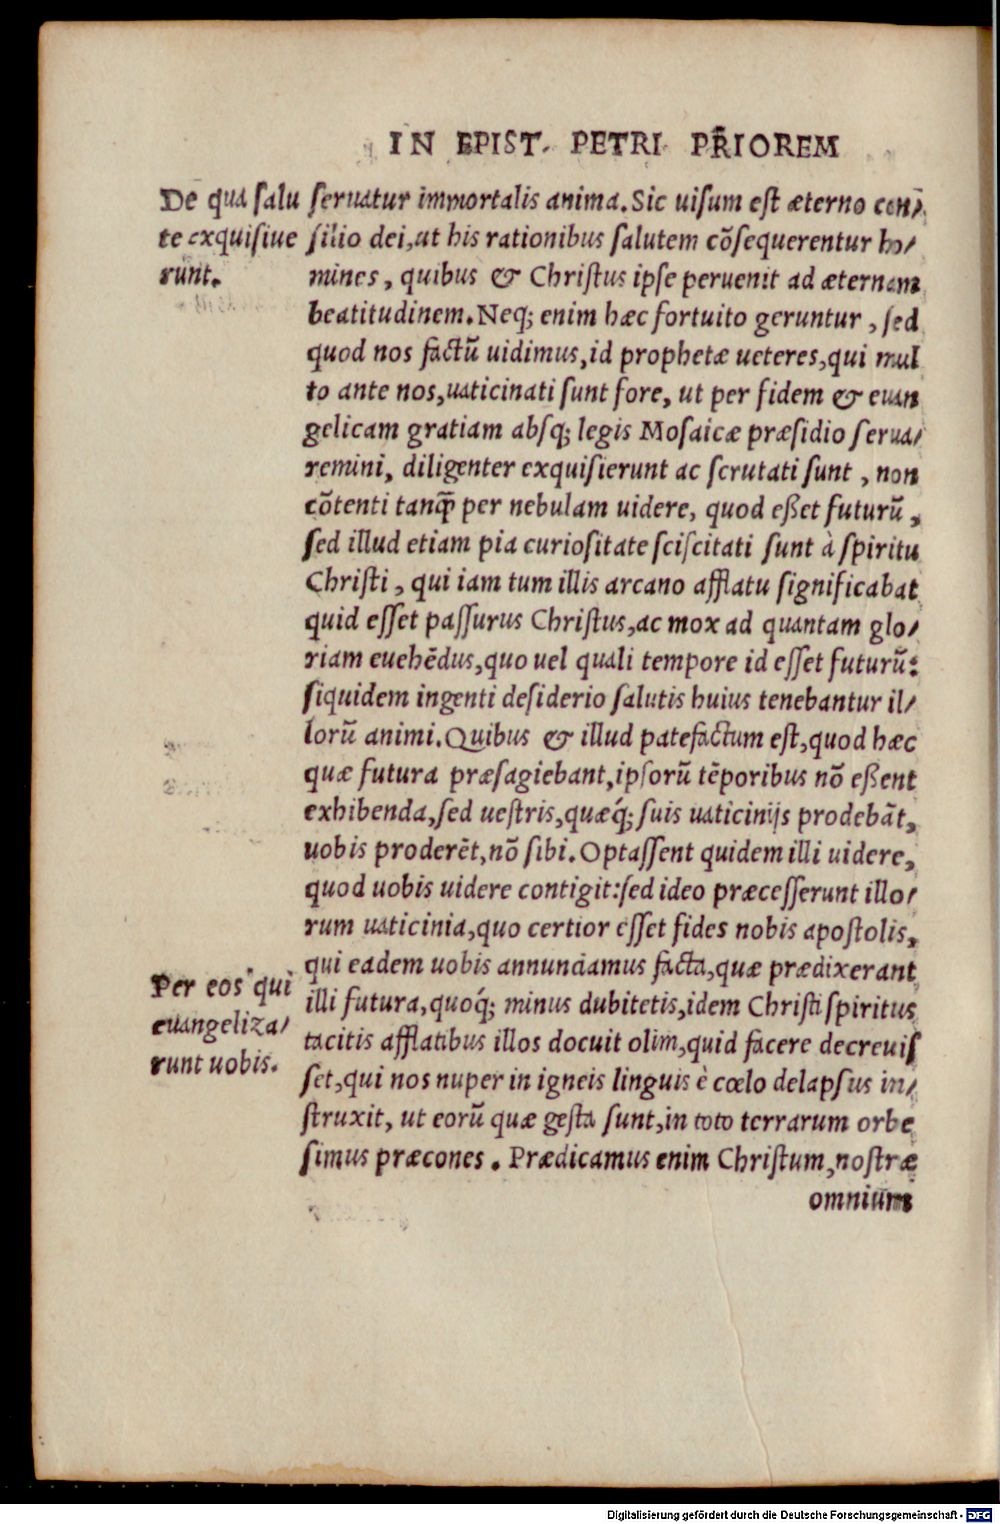 IN EPIST. PETRI PR̃IOREM
De qua salu
te exquisiue
runt.
seruatur immortalis anima. Sic uisum est æterno con/
silio dei, ut his rationibus salutem cõsequerentur ho/
mines, quibus & Christus ipse peruenit ad æternam
beatitudinem. Neq; enim hæc fortuito geruntur, sed
quod nos factũ uidimus, id prophetæ ueteres, qui mul
to ante nos, uaticinati sunt fore, ut per fidem & euan
gelicam gratiam absq; legis Mosaicæ præsidio serua/
remini, diligenter exquisierunt ac scrutati sunt, non
cõtenti tanq̃ per nebulam uidere, quod eßet futurũ,
sed illud etiam pia curiositate sciscitati sunt à spiritu
Christi, qui iam tum illis arcano afflatu significabat
quid esset passurus Christus, ac mox ad quantam glo/
riam euehẽdus, quo uel quali tempore id esset futurũ:
siquidem ingenti desiderio salutis huius tenebantur il/
lorũ animi. Quibus & illud patefactum est, quod hæc
quæ futura præsagiebant, ipsorũ tẽporibus nõ eßent
exhibenda, sed uestris, quæq́; suis uaticinijs prodebãt,
uobis proderẽt, nõ sibi. Optassent quidem illi uidere,
quod uobis uidere contigit: sed ideo præcesserunt illo/
rum uaticinia, quo certior esset fides nobis apostolis,
qui eadem uobis annunciamus facta, quæ prædixerant
Per eos qui
euangeliza/
runt uobis.
illi futura, quoq́; minus dubitetis, idem Christi spiritus
tacitis afflatibus illos docuit olim, quid facere decreuis
set, qui nos nuper in igneis linguis è cœlo delapsus in/
struxit, ut eorũ quæ gesta sunt, in toto terrarum orbe
simus præcones. Prædicamus enim Christum, nostræ
omnium
Digitalisierung gefördert durch die Deutsche Forschungsgemeinschaft - DFG